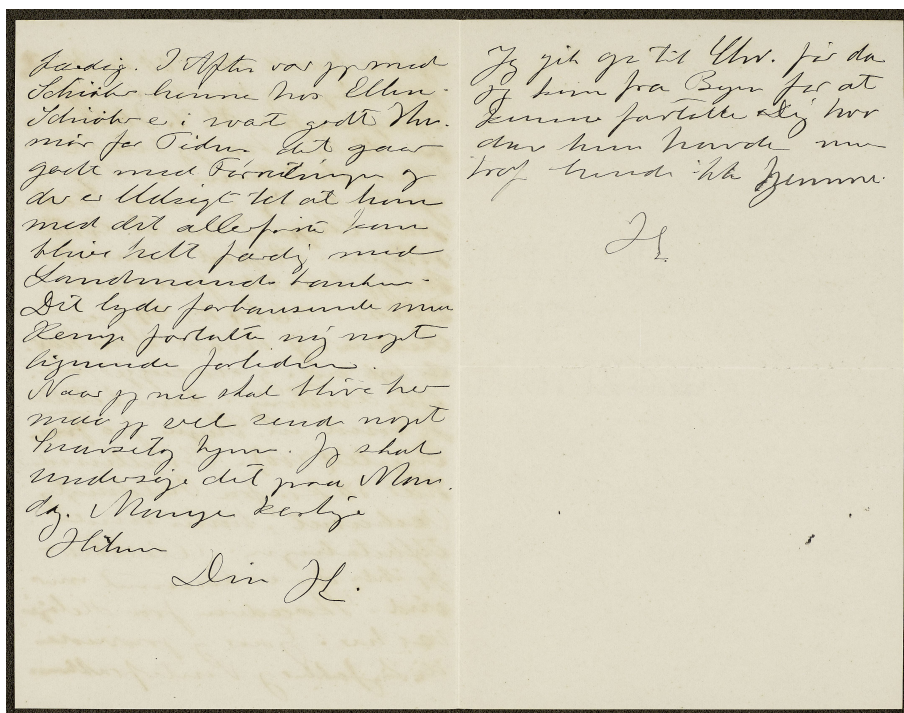 færdig. I Aften var jeg med
Schiøler henne hos Ellen.
Schiøler e i svært godt Hu-
mør for Tiden det gaar
godt med Forretningen og
der e Udsigt til at ham
med det allerførste kan
blive helt færdig med
Landmandsbanken.
Det lyder forbausende men
Kemp fortalte mig noget
lignende forleden.
Naar jeg nu skal blive her
maa jeg vel sende noget
hjem. Jeg skal
undersøge det paa Man-
dag. Mange kærlige
Hilsner
Din HL.
Jeg gik op til Chr. før da
jeg kom fra Byen for at
kunne fortælle Dig hvor
dan hun havde men
traf hende ikke hjemme.
HL